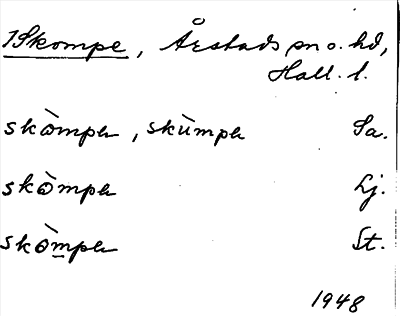 1Skompe, Årstads sn o. hd,
Hall. l.
skòmpə, skùmpə Sa.
skòmpə Lj.
skòmpə St.
1948